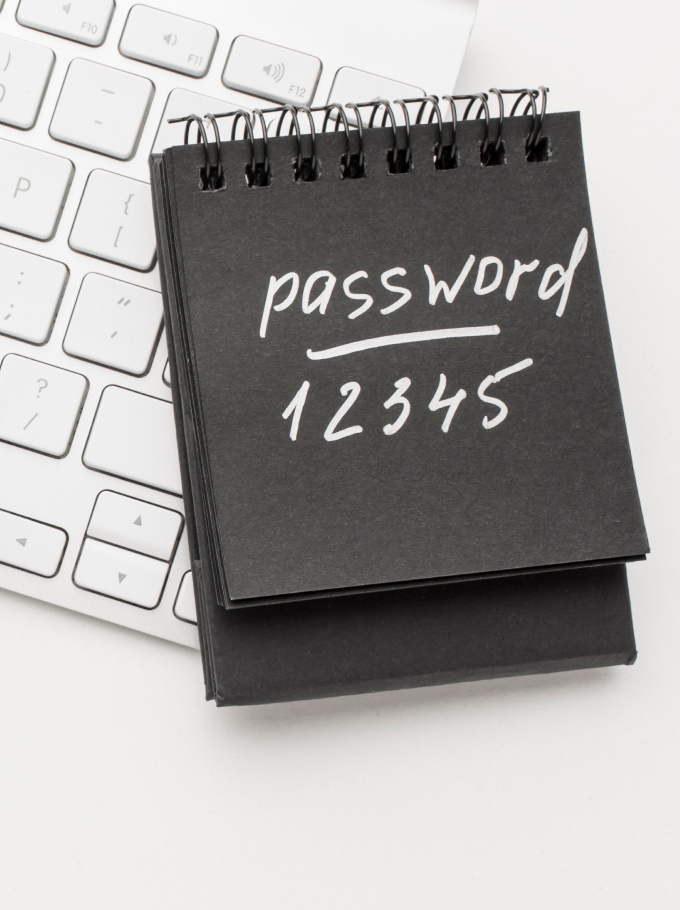 F10
F11
F12
)
0
_
-
P
{
[
:
;
"
'
?
/
password
12345